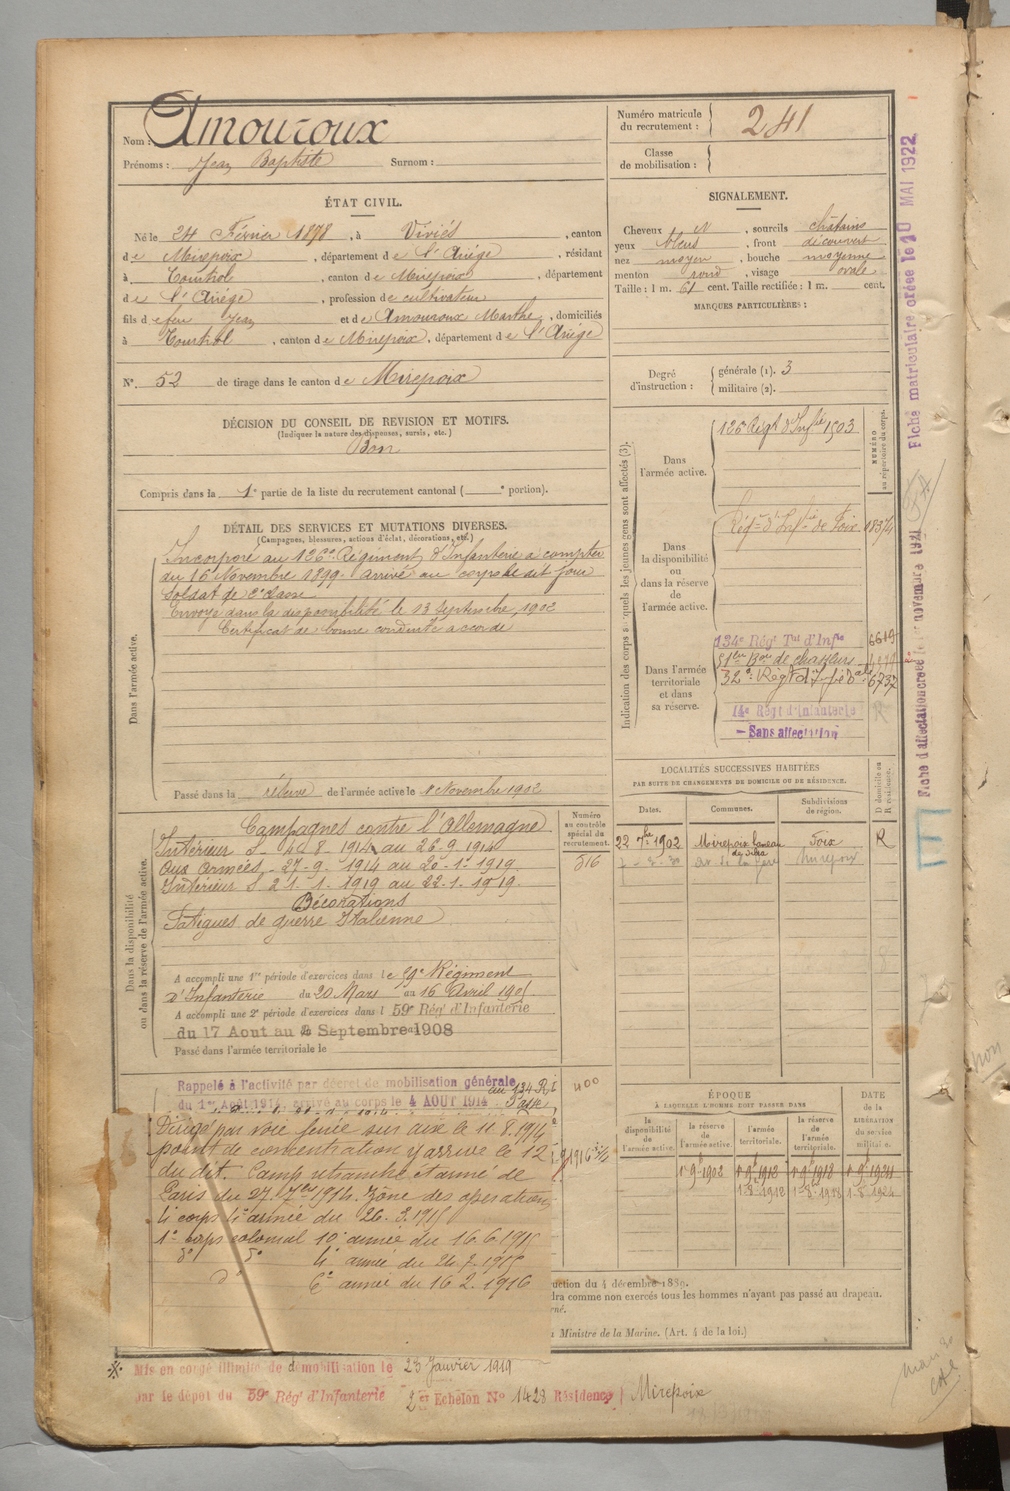 Nom : Amouroux
Prénoms : Jean Baptiste Surnom :
Numéro matricule du recrutement : 241
Classe de mobilisation :
ÉTAT CIVIL.
Né le 24 Février 1878, à Viviés, canton
de Mirepoix, département de l'Ariège, résidant
à Tourtrol, canton de Mirepoix, département
de l'Ariège, profession de cultivateur
fils de feu Jean et de Amouroux Marthe, domiciliés
à Tourtrol, canton de Mirepoix, département de l'Ariège
N° 52 de tirage dans le canton de Mirepoix
DÉCISION DU CONSEIL DE REVISION ET MOTIFS.
(Indiquer la nature des dispenses, sursis, etc.)
Bon
Compris dans la 1e partie de la liste du recrutement cantonal ( e portion).
SIGNALEMENT.
Cheveux N, sourcils châtains
yeux bleus, front découvert
nez moyen, bouche moyenne
menton rond, visage ovale
Taille : 1 m. 61 cent. Taille rectifiée : 1 m. cent.
MARQUES PARTICULIÈRES :
Degré d'instruction :
générale (1). 3
militaire (2).
DÉTAIL DES SERVICES ET MUTATIONS DIVERSES.
(Campagnes, blessures, actions d'éclat, décorations, etc.)
Dans l'armée active.
Incorporé au 126e Régiment d'Infanterie à compter
du 16 Novembre 1899. arrivé au corps le dit jour
Soldat de 2e classe
Envoyé dans la disponibilité le 13 Septembre 1902
Certificat de bonne conduite accordé
Passé dans la réserve de l'armée active le 1 Novembre 1902
Indication des corps auxquels les jeunes gens sont affectés (3).
NUMÉRO au répertoire du corps.
Dans l'armée active.
126 Régt d'Infie 1903
Dans la disponibilité ou dans la réserve de l'armée active.
Régnt d'Infie de Foix 1837/4
Dans l'armée territoriale et dans sa réserve.
134e Rég Tal d'Infie 6619
51e Bon de chasseurs
32e Régt d'Infie 6737
14e Régt d'Infanterie R
- Sans affectation
LOCALITÉS SUCCESSIVES HABITÉES
PAR SUITE DE CHANGEMENTS DE DOMICILE OU DE RÉSIDENCE.
Dates. Communes. Subdivisions de région. D domicile ou R résidence.
22 7bre 1902 Mirepoix Foix R
Mirepoix
Dans la disponibilité ou dans la réserve de l'armée active.
Numéro au contrôle spécial du recrutement.
516
Campagnes contre l'Allemagne
Intérieur S. 4. 8 1914 au 26. 9 1914
Aux armées, 27-9. 1914 au 20-1. 1919
Intérieur S 21. 1. 1919 au 22-1. 1919.
Décorations
Fatigues de guerre Italienne
A accompli une 1re période d'exercices dans le 59e Régiment
d'Infanterie du 20 Mars au 16 Avril 1905
A accompli une 2e période d'exercices dans l 59e Rég' d'Infanterie
du 17 Aout au Septembre 1908
Passé dans l'armée territoriale le
Rappelé à l'activité par décret de mobilisation générale au 134 Rt
du 1er Août 1914, arrivé au corps le 4 AOUT 1914 - Passé
400
Dirigé par voie ferrée sur aire le 11. 8. 1914
point de concentration y arrive le 12
du dit. Camp retranché et armé de
Paris du 27. 7bre 1914. Zône des opérations
4e corps 4e armée du 26. 3. 1915
1er corps colonial 10e armée du 16. 6. 1915
d° d° 4e armée du 24. 7. 1915
d° 6e armée du 16. 2. 1916
ÉPOQUE
À LAQUELLE L'HOMME DOIT PASSER DANS
la disponibilité de l'armée active.
la réserve de l'armée active.
l'armée territoriale.
la réserve de l'armée territoriale.
DATE de la LIBÉRATION du service militaire.
1r 9 1902 1r 9 1912 1r 9 1918 1r 9 1924
1.8.1912 1.8.1918 1.8.1924
uction du 4 décembre 1889.
dra comme non exercés tous les hommes n'ayant pas passé au drapeau.
rné.
u Ministre de la Marine. (Art. 4 de la loi.)
Mis en congé illimité de démobilisation le 23 Janvier 1919
par le dépot du 59e Rég' d'Infanterie 2er Echelon N° 1428 Résidence Mirepoix
Fiche d'affectation créée le 1er novembre 1921
Fiche matriculaire créée le 20 MAI 1922
non